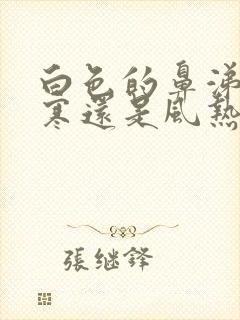 白色的鼻涕
寒還是風熱
張継鋒